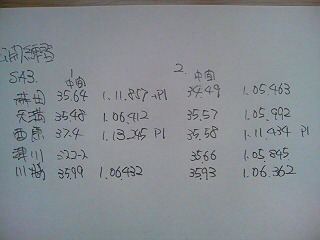 公開練習
SA3.
1 2.
中間 中間
森田 35.64 1.11.857 +P1 34.49 1.05.463
35.48 1.06.412 35.57 1.05.992
西原 37.4 1.13.245 P1 35.58 1.11.434 P1
津川 35.66 1.05.845
川崎 35.99 1.06432 35.93 1.06.362